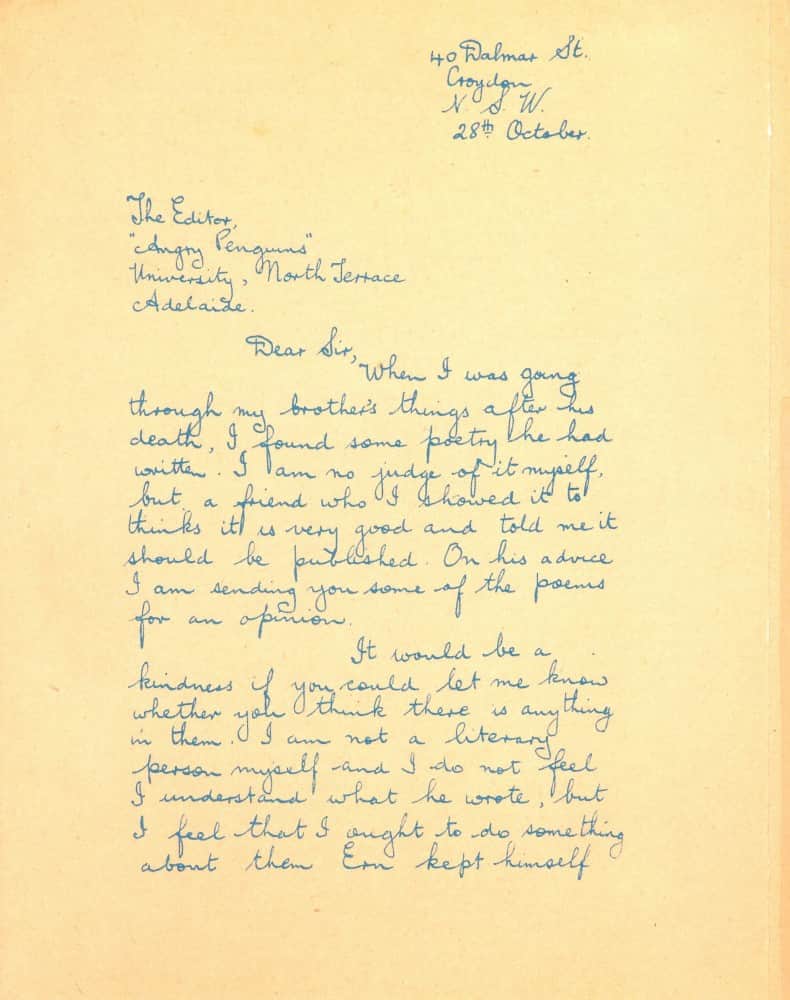 40 Dalmar St.
Croydon
N. S. W.
28th October.
The Editor,
"Angry Penguins"
University, North Terrace
Adelaide.
Dear Sir,
When I was going
through my brother's things after his
death, I found some poetry he had
written. I am no judge of it myself,
but a friend who I showed it to
thinks it is very good and told me it
should be published. On his advice
I am sending you some of the poems
for an opinion.
It would be a
kindness if you could let me know
whether you think there is anything
in them. I am not a literary
person myself and I do not feel
I understand what he wrote, but
I feel that I ought to do something
about them Ern kept himself